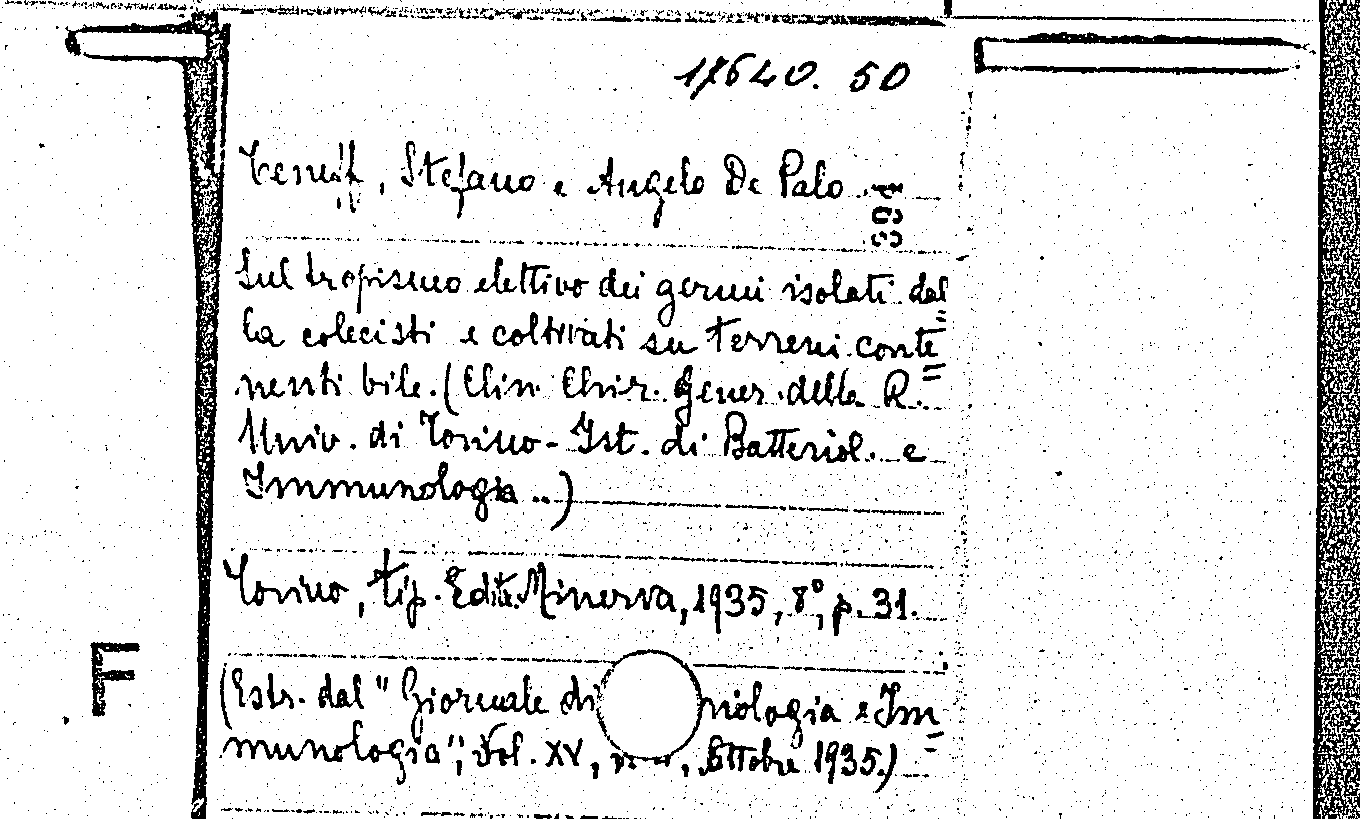 17640. 50
Teneff, Stefano e Angelo De Palo
193
Sul tropismo elettivo dei germi isolati dal=
la colecisti e coltivati su terreni conte=
nenti bile. (Clin. Chir. Gener. della R.
Univ. di Torino - Ist. di Batteriol. e
Immunologia ..)
Torino, tip. Edit. Minerva, 1935, 8°, p. 31.
F
(Estr. dal "Giornale di niologia e Im=
munologia", Vol. XV, Ottobre 1935.)